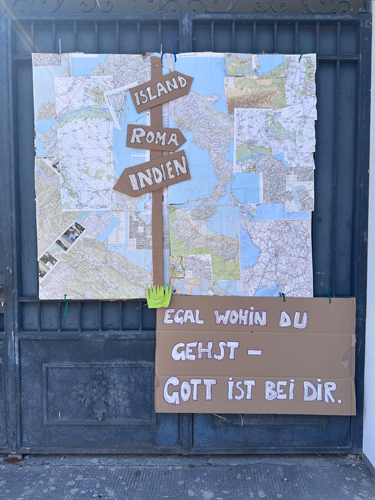 ISLAND
ROMA
INDIEN
EGAL WOHIN DU
GEHST –
GOTT IST BEI DIR.